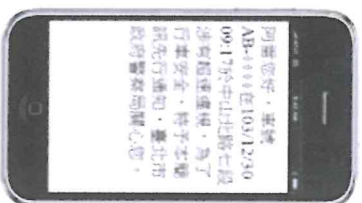 您好,車號
AB-****在103/12/30
09:17於中山北路七段
涉有超速違規,為了
行車安全,特予本簡
訊先行通知,臺北市
政府警察局關心您。